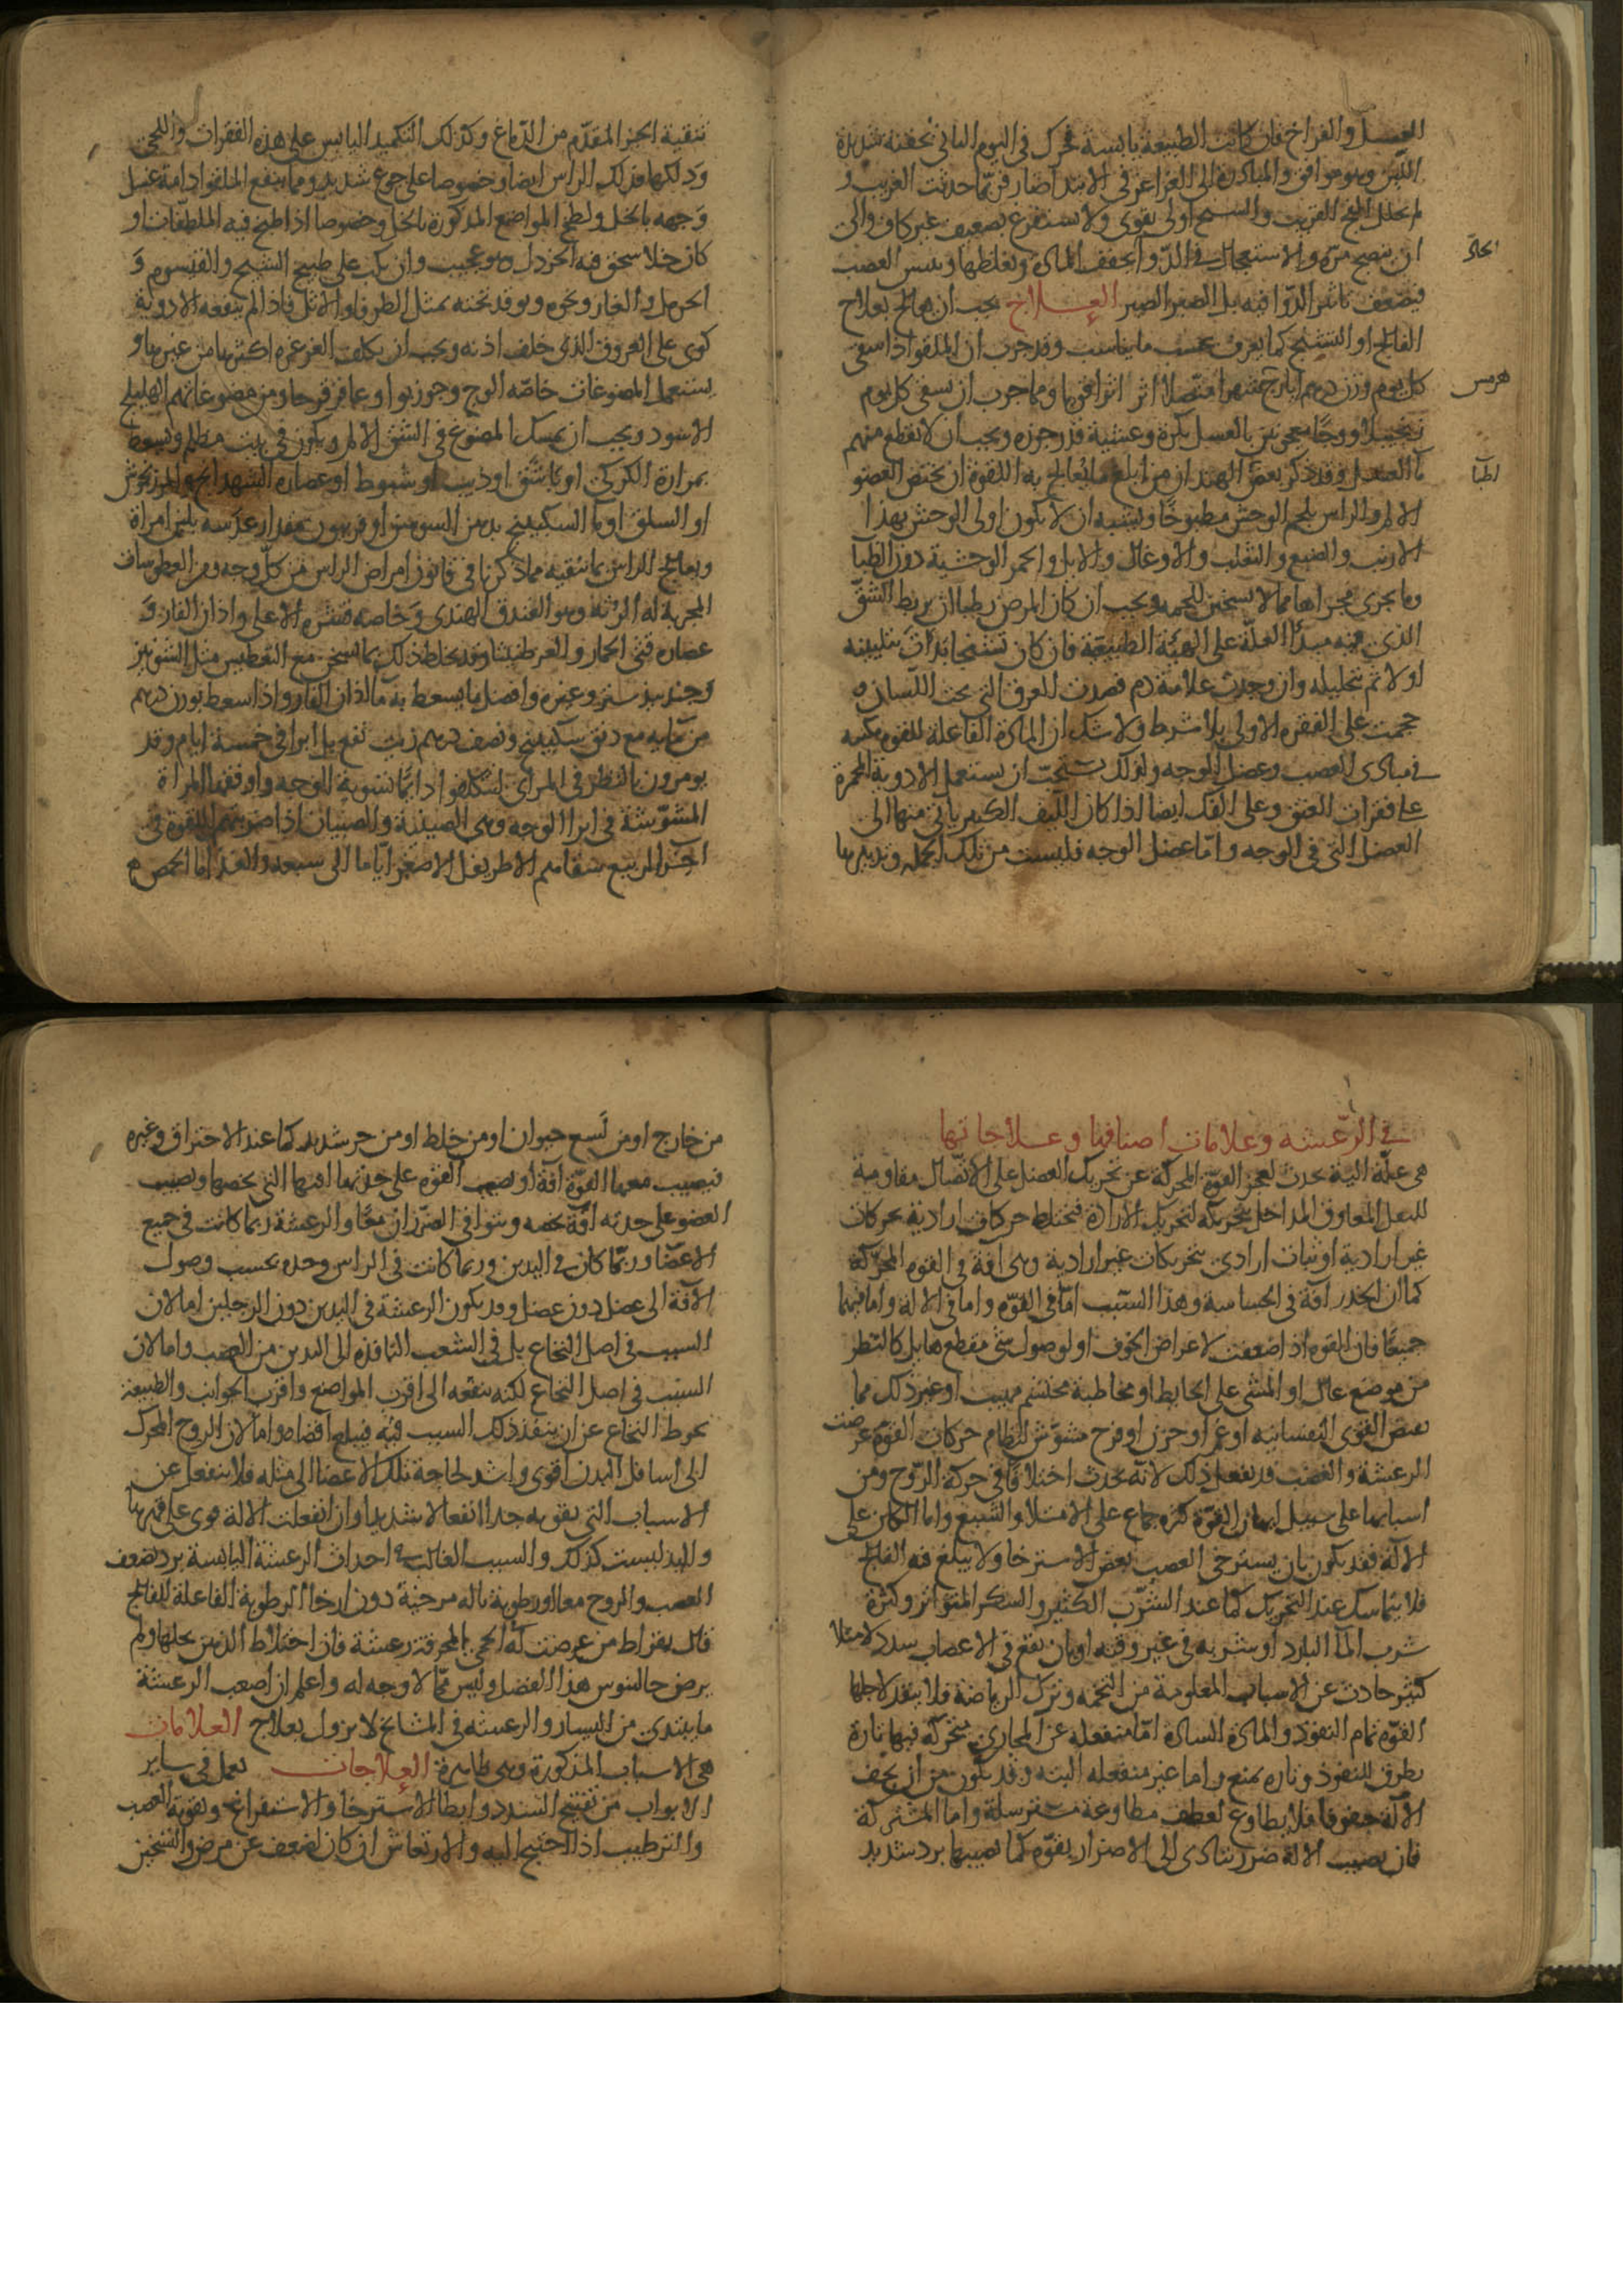 العسل والفراخ فان كانت الطبيعة يابسة تحرك في اليوم الثاني بحقنة شديدة
اللين وهو موافق والمبادرة الى الغراغر في الابتدا ضار فربما حدثت القريب و
لم تحلل الفج القريب والسهم اولى يقوى ولا يستفرغ بضعيف غير كاف والى
ان ينضج مرة والاستعجال في الدوا يجفف المادة ويغلظها وييبس العصب
فيضعف تاثير الدوا فيه بل الصبر الصبر العلاج يجب ان يعالج بعلاج
الفالج او التشنج كما يعرف بحسب ما يناسب وقد جرب ان الملقو اذا سقى
كل يوم وزن درهم ايارج شهرا متصلا اثر اثرا قويا ومما جرب ان يسقى كل يوم
زنجبيلا ووجا معجونين بالعسل بكرة وعشية قدر جوزه ويجب ان لا يقطع منهم
ما العسل وقد ذكر بعض الهند ان من ابلغ ما يعالج به اللقوة ان يختص العضو
الالم والراس بلحم الوحش مطبوخا ويشبه ان لا يكون اولى الوحش بهذا
الارنب والضبع والثعلب والاوعال والابل والحمر الوحشية دون الظبا
وما يجرى مجراها مما لا تسخين للحمه ويجب ان كان المرض رطبا ان يربط الشق
الذي فيه مبدا العلة على الهيئة الطبيعية فان كان تشنجا بدات بتليينه
اولا ثم تحليله وان وجدت علامة دم فصدت للعرق التي تحت اللسان و
حجمت على الفقره الاولى بلا شرط ولا شك ان المادة الفاعلة للقوة
في مبادى العصب وعضل الوجه ولذلك يستحب ان يستعمل الادوية المحمرة
على فقرات العنق وعلى الفك ايضا اذا كان الليف الكثير ياتي منها الى
العضل التي في الوجه واما عضل الوجه فليست من تلك الجمله وتدبيرها
هرمس
اطبا
تنقية الجز المقدم من الدماغ وكذلك التكميد اليابس على هذه الفقرات واللحى
ودلكها وذلك الراس ايضا وخصوصا على جوع شديد ومما ينفع الملقو ادامة غسل
وجهه بالخل ولطخ المواضع المذكورة بالخل وخصوصا اذا طبخ فيه الملطفات او
كان خلا سحق فيه الخردل وهو عجيب وان يكب على طبيخ الشيح والقيسوم و
الحرمل والغار ونحوه ويوقد تحته بمثل الطرفا او الاثل فاذا لم ينفعه الادوية
كوى على العروق الذي خلف اذنه ويجب ان يكلف الغرغره اكثر منها من غيرها و
يستعمل المضوغات خاصه الوج وجوزبوا وعاقر قرحا ومن مضوغاتهم الهليلج
الاسود ويجب ان يمسك المضوغ في الشق الالم ويكون في بيت مظلم ويسعط
بمرارة الكركى او باشق او ذيب او شبوط او عصاره الشهدانج والمرزنجوش
او السلق او ما السكبينج بدهن السوسن او فربيون مقدار عدسه بلبن امراة
ويعالج الراس بما ينقيه مما ذكرنا في قانون امراض الراس من كل وجه ومن العطوسات
المجربة له الرته وهو البندق الهندى وخاصه قشره الاعلى واذان الفار و
عصاره قثى الحمار والعرطنيثا وقد يخلط ذلك بما يسخن مع التعطيس مثل الشونيز
وجندبيدستر وغيره وافضل ما يسعط به ما اذان الفار واذا سعط بوزن درهم
من مايه مع دنق سكبينج ونصف درهم زيت نفع بل ابرا في خمسة ايام وقد
يومرون بالنظر في المراي ليتكلفوا دايما تسوية الوجه واوفقها المراة
المشوشة في ابرا الوجه وهى الصينية والصبيان اذا ضربتهم اللقوة في
اخر الربيع سقاهم الاطريفل الاصغر اياما الى سبعه والغذا ما الحمص م
في الرعشه وعلامات اصنافها وعلاجاتها
هى علة الية تحدث لعجز القوة المحركة عن تحريك العضل على الاتصال مقاومة
للثقل المعاوق المداخل بتحريكه لتحريك الارادة فتختلط حركات ارادية بحركات
غير ارادية او ثبات ارادى بتحريكات غير ارادية وهى افة في القوة المحركة
كما ان الخدر افة في الحساسية وهذا السبب اما في القوه واما في الالة واما فيهما
جميعا فان القوه اذا ضعفت لاعراض الخوف او لوصول شى مقطع هايل كالنظر
من موضع عال او المشى على الحايط او مخاطبة محتشم مهيب او غير ذلك مما
يقبض القوى النفسانيه او غم او حزن او فرح مشوش لنظام حركات القوة عرضت
الرعشة والغضب قد يفعل ذلك لانه يحدث اختلافا في حركة الروح ومن
اسبابها على سبيل ايهان القوه كثره جماع على الامتلا والشبع واما الكائن على
الالة فقد يكون بان يسترخى العصب بعض الاسترخا ولا يبلغ به الفالج
فلا يتماسك عند التحريك كما عند الشرب الكثير والسكر المتواتر وكثرة
شرب الما البارد او شربه في غير وقته او بان يقع في الاعصاب سدد لامتلا
كثير حادث عن الاسباب المعلومة من التخمه وترك الرياضة فلا ينفذ لاجلها
القوه تمام النفوذ والمادة السادة اما منفعله عن المجارى متحركه فيها تارة
يطرق للنفوذ وتاره يمنع واما غير منفعله البته وقد يكون من ان يجف
الالة جفوفا فلا يطاوع لعطف مطاوعة مسترسلة واما المشتركة
فان يصيب الالة ضرر يتادى الى الاضرار بقوه كما يصيبها برد شديد
من خارج او من لسع حيوان او من خلط او من حر شديد كما عند الاحتراق وغيره
فيصيب معها القوة افة او يصيب القوه على حدتها افتها التي تخصها ويصيب
العضو على حدته افة تخصه ويتوافى الضرران معا والرعشة ربما كانت في جميع
الاعضا وربما كان في اليدين وربما كانت في الراس وحده بحسب وصول
الافة الى عضل دون عضل وقد يكون الرعشة في اليدين دون الرجلين اما لان
السبب في اصل النخاع بل في الشعب النافذه الى اليدين من العصب واما لان
السبب في اصل النخاع لكنه ينفعه الى اقرب المواضع واقرب الجوانب والطبيعة
تحوط النخاع عن ان ينفذ ذلك السبب فيه فيبلغ اقصاه واما لان الروح المحرك
الى اسافل البدن اقوى واشد لحاجة تلك الاعضا الى مثله فلا ينفعل عن
الاسباب التي بقويه جدا انفعالا شديدا وان انفعلت الالة قوى على قهرها
واليد ليست كذلك والسبب الغالب في احداث الرعشة اليابسة برد يضعف
العصب والروح معا او رطوبة بالة مرخية دون ارخا الرطوبة الفاعلة للفالج
قال بقراط من عرضت له الحمى المحرقة رعشة فان اختلاط الذهن يحلها ولم
يرض جالينوس هذا الفصل وليس مما لا وجه له واعلم ان اصعب الرعشة
ما يبتدى من اليسار والرعشه في المشايخ لا يزول بعلاج العلامات
هى الاسباب المذكورة وهى ظاهرة العلاجات يعمل في ساير
الابواب من تفتيح السدد وابطا الاسترخا والاستفراغ وتقوية العصب
والترطيب اذا احتيج اليه والارتعاش ان كان لضعف عن مرض والتسخين